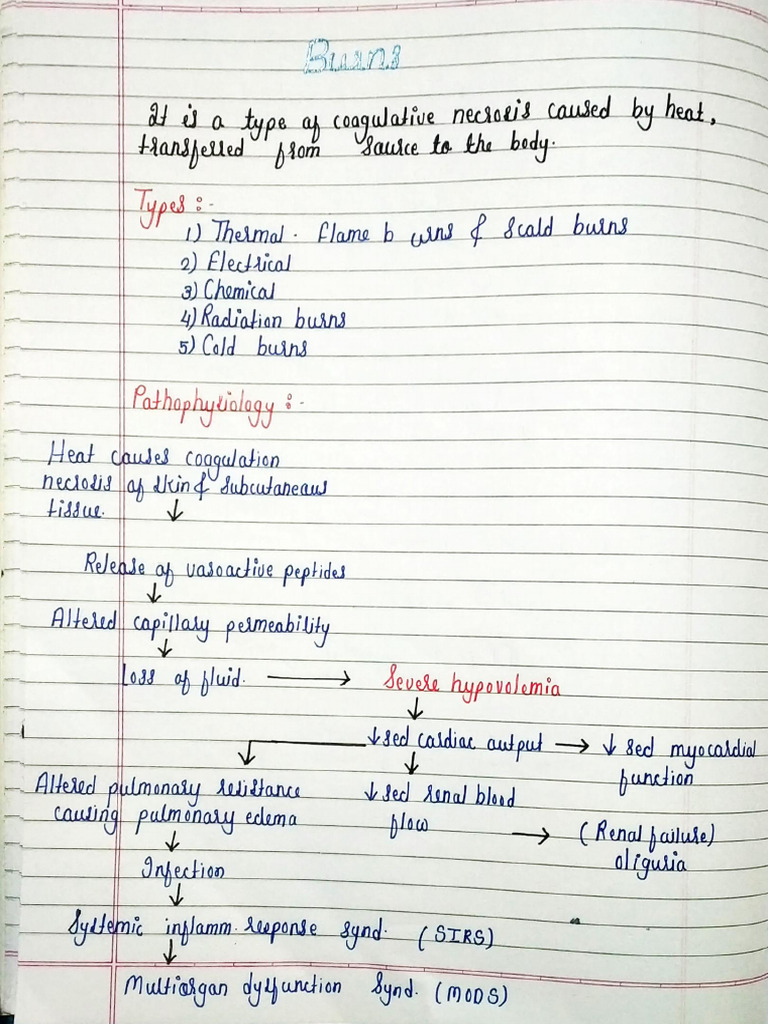 Burns
It is a type of coagulative necrosis caused by heat,
transferred from source to the body.
Types :-
1) Thermal. Flame burns & Scald burns
2) Electrical
3) Chemical
4) Radiation burns
5) Cold burns
Pathophysiology :-
Heat causes coagulation
necrosis of skin & subcutaneous
tissue. ↓
Release of vasoactive peptides
↓
Altered capillary permeability
↓
Loss of fluid. → Severe hypovolemia
↓
↓sed cardiac output → ↓sed myocardial
function
↓
Altered pulmonary resistance
causing pulmonary edema
↓sed renal blood
flow → (Renal failure)
oliguria
↓
Infection
↓
Systemic inflamm. response synd. (SIRS)
↓
Multiorgan dysfunction Synd. (MODS)